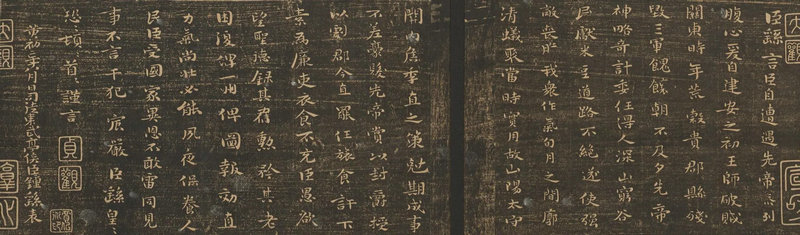 臣繇言臣自遭遇先帝忝列
腹心爰自建安之初王師破賊
關東時年荒穀貴郡縣殘
毀三軍餽饟朝不及夕先帝
神略奇計委任得人深山窮谷
民獻米豆道路不絕遂使強
敵喪膽我眾作氣旬月之間廓
清蟻聚當時實用故山陽太守
關內侯季直之策剋期成事
不差豪髮先帝賞以封爵授
以劇郡今直罷任旅食許下
素為廉吏衣食不充臣愚欲
望聖德錄其舊勳矜其老
困復俾一州俾圖報效直
力氣尚壯必能夙夜保養人
民臣受國家異恩不敢雷同見
事不言干犯宸嚴臣繇皇皇
恐頓首謹言
黃初二年八月日司徒東武亭侯臣鍾繇表
貞觀
大觀
大觀
宣和